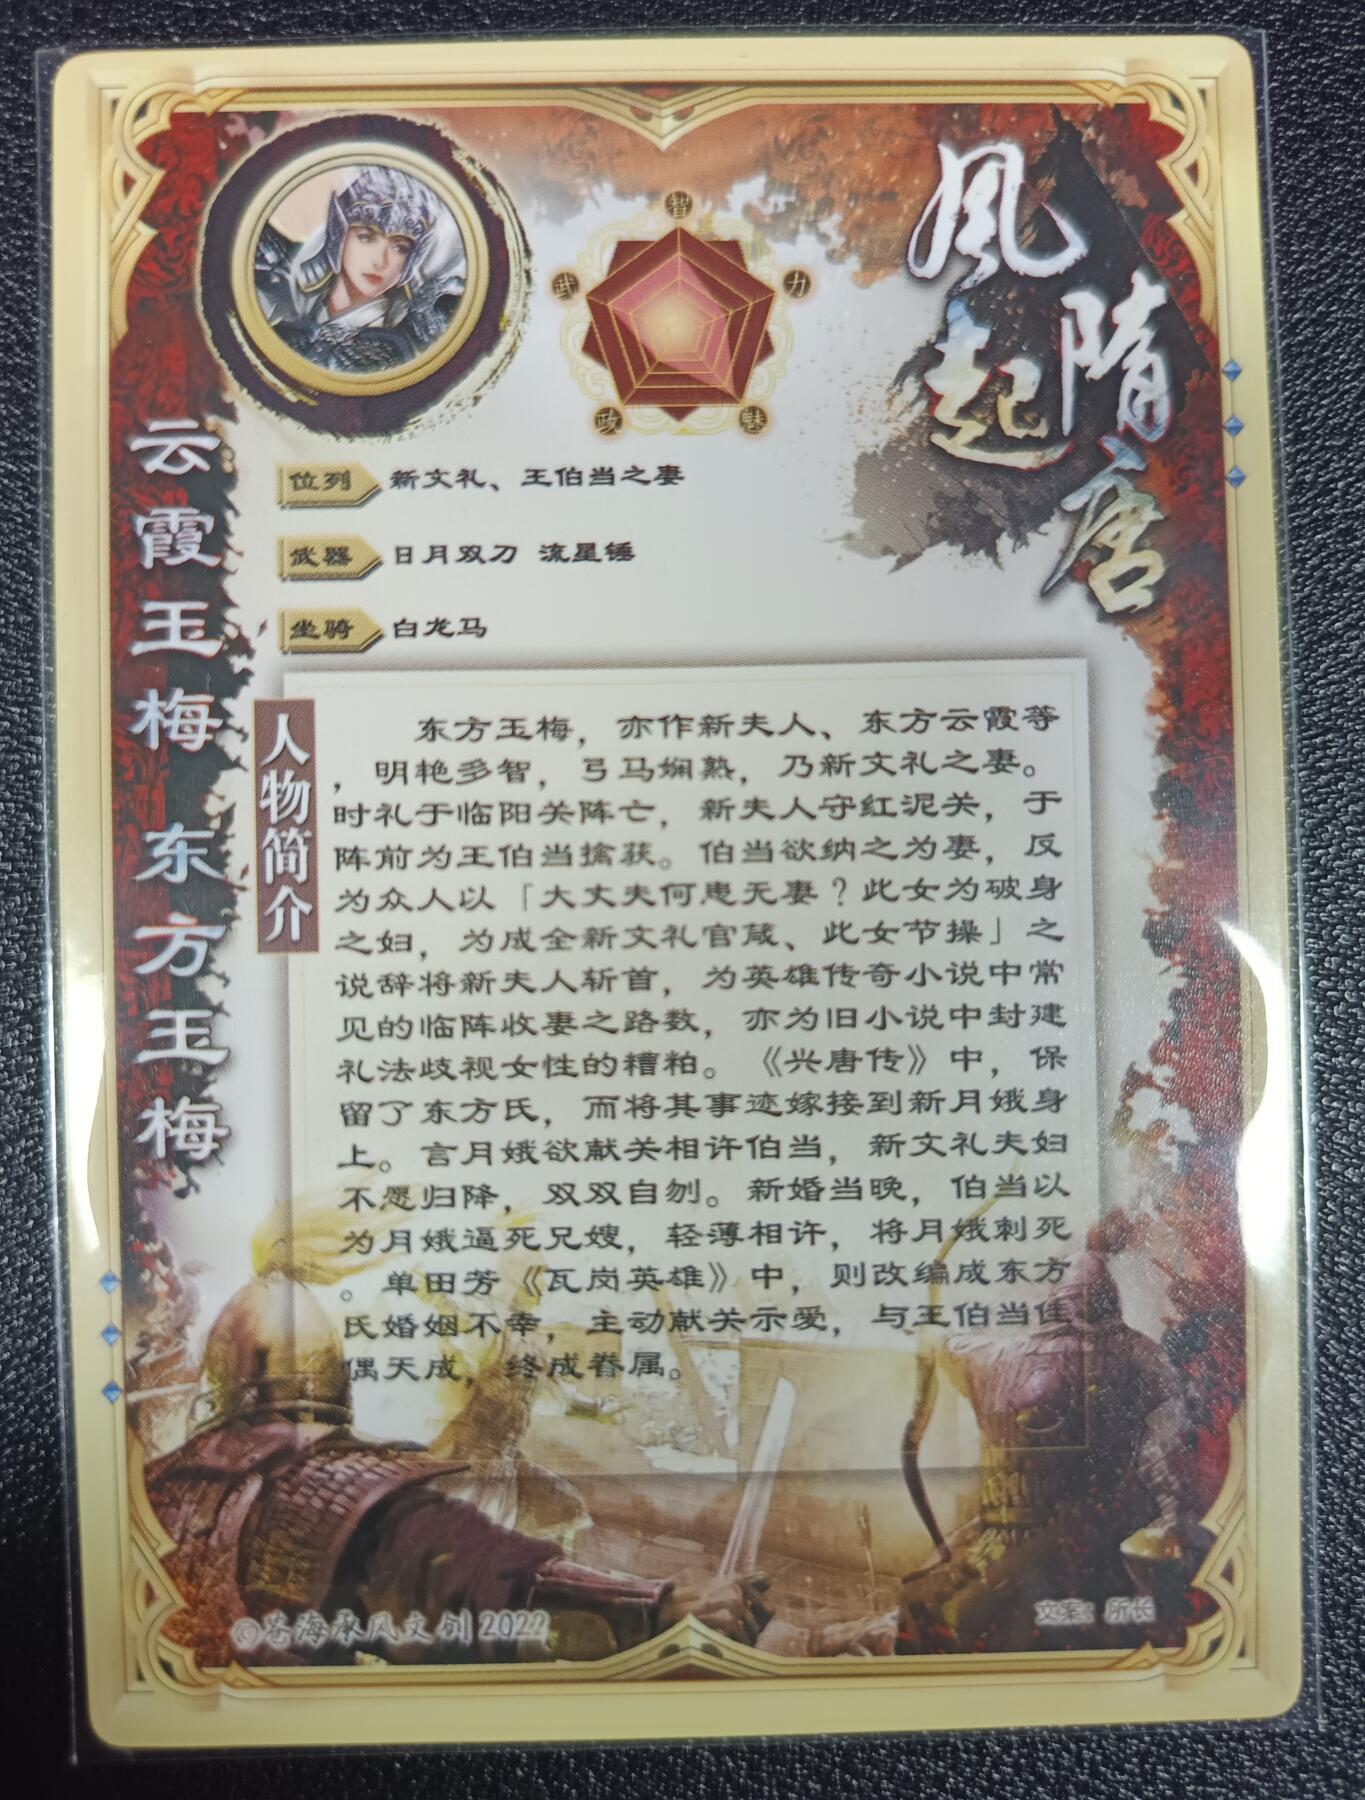 風起
隋唐
智
武
力
政
魅
云霞玉梅 东方玉梅
位列 新文礼、王伯当之妻
武器 日月双刀 流星锤
坐骑 白龙马
人物简介
东方玉梅，亦作新夫人、东方云霞等
，明艳多智，弓马娴熟，乃新文礼之妻。
时礼于临阳关阵亡，新夫人守红泥关，于
阵前为王伯当擒获。伯当欲纳之为妻，反
为众人以「大丈夫何患无妻？此女为破身
之妇，为成全新文礼官箴、此女节操」之
说辞将新夫人斩首，为英雄传奇小说中常
见的临阵收妻之路数，亦为旧小说中封建
礼法歧视女性的糟粕。《兴唐传》中，保
留了东方氏，而将其事迹嫁接到新月娥身
上。言月娥欲献关相许伯当，新文礼夫妇
不愿归降，双双自刎。新婚当晚，伯当以
为月娥逼死兄嫂，轻薄相许，将月娥刺死
。单田芳《瓦岗英雄》中，则改编成东方
氏婚姻不幸，主动献关示爱，与王伯当佳
偶天成，终成眷属。
©苍海承风文创 2022
文案：所长